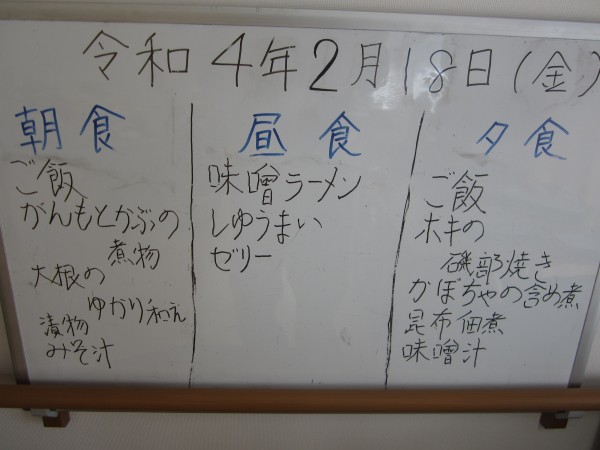 令和4年2月18日(金)
朝食
ご飯
がんもとかぶの
煮物
大根の
ゆかり和え
漬物
みそ汁
昼食
味噌ラーメン
しゅうまい
ゼリー
夕食
ご飯
ホキの
磯部焼き
かぼちゃの含め煮
昆布佃煮
味噌汁